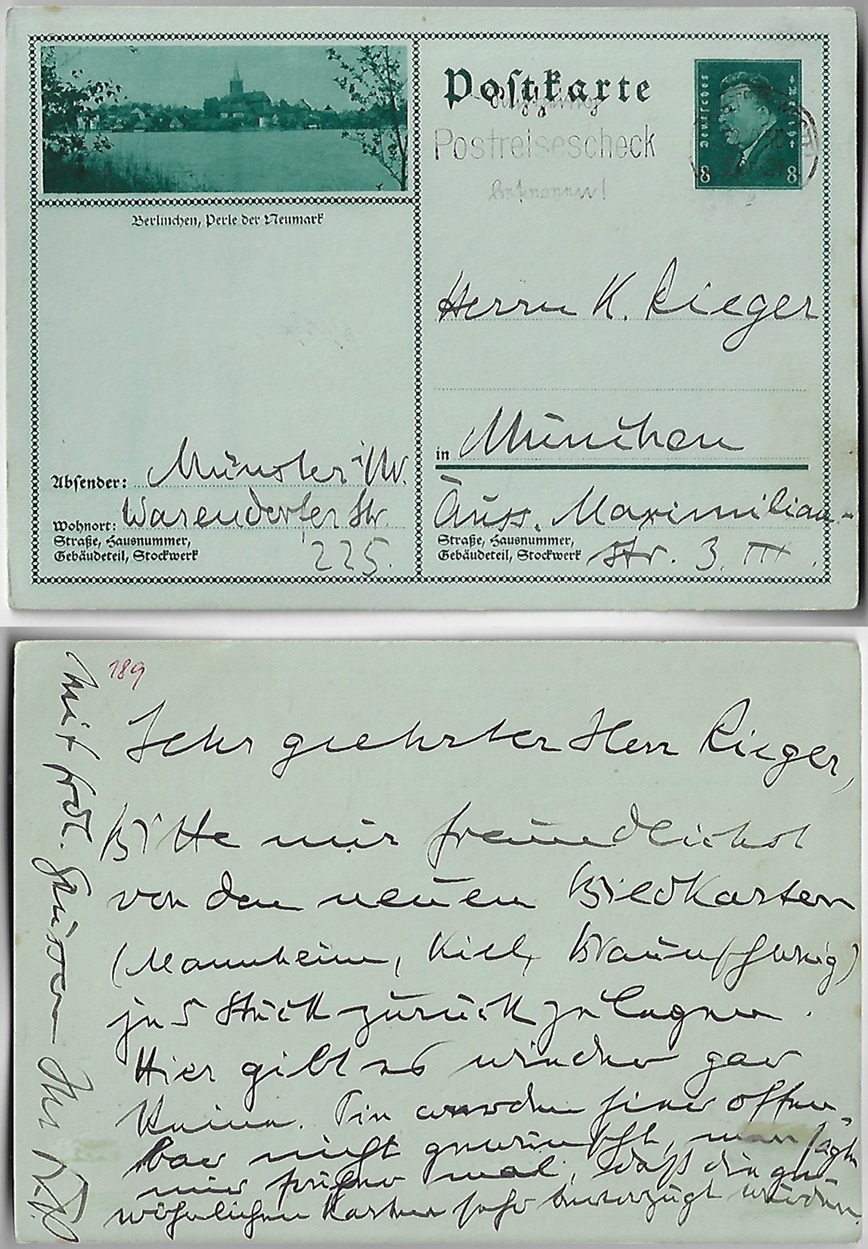 Postkarte
Postreisescheck
Deutsches Reich
8 8
Berlinchen, Perle der Neumark
Herrn K. Rieger
in München
Äuss. Maximilian-
Straße, Hausnummer,
Gebäudeteil, Stockwerk
str. 3. III.
Absender: Münster i/W.
Wohnort: Warendorfer Str.
Straße, Hausnummer,
Gebäudeteil, Stockwerk
225.
189
Sehr geehrter Herr Rieger,
Bitte mir freundlichst
von den neuen Bildkarten
(Mannheim, Kiel, Braunschweig)
je 5 Stück zurückzulegen.
Hier gibt es wieder gar
keine. Sie werden hier offen-
bar nicht gewünscht, man sagte
mir früher mal, daß die ge-
wöhnlichen Karten sehr bevorzugt würden.
Mit frdl. Grüssen Ihr